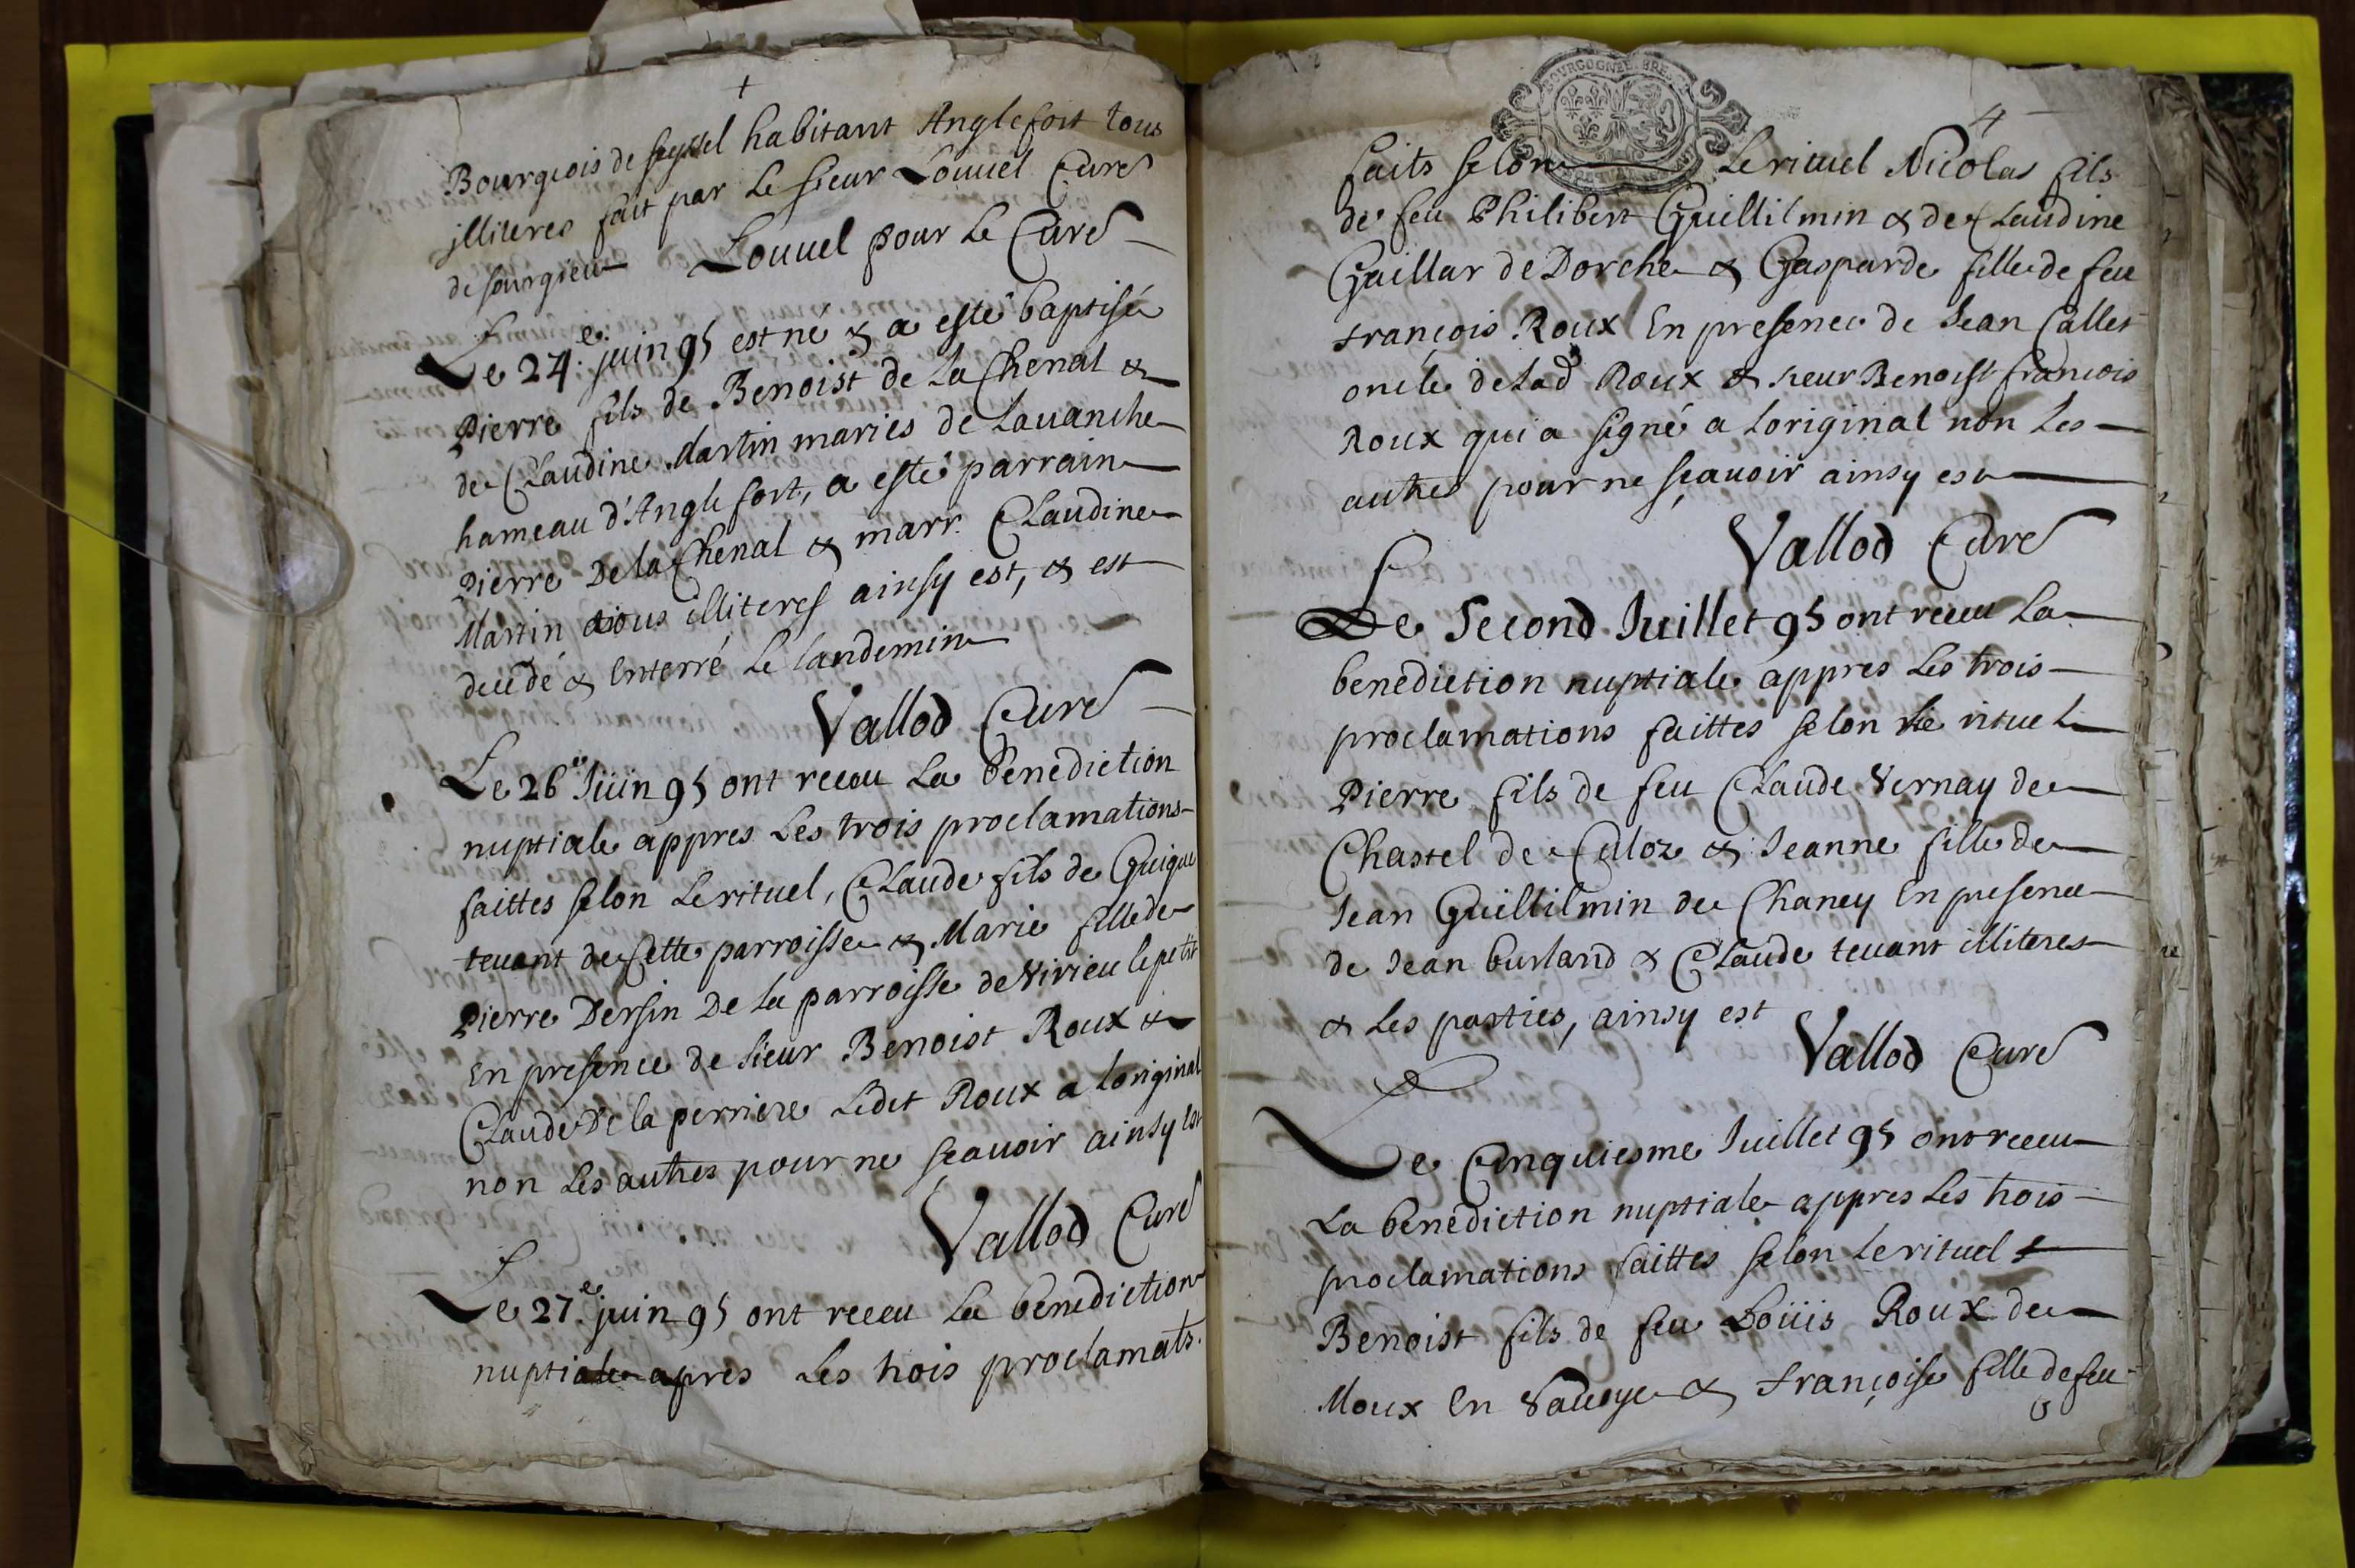 +
Bourgeois de seyssel habitant Anglefort tous
jlliteres fait par Le sieur Louuel Curé
de sourgieu Louuel pour Le Curé
Le 24.e juin 95 est né & a esté baptisé
Pierre fils de Benoist de La Chenal &
de Claudine Martin mariés de Lauanche
hameau d'Anglefort, a esté parrain
Pierre De la Chenal & marr. Claudine
Martin tous illiteres ainsy est, & est
decedé & Enterré Le landemin
Vallod Curé
Le 26e Juin 95 ont receu La Benediction
nuptiale appres Les trois proclamations
faittes selon Le rituel, Claude fils de Guigue
teuant de Cette parroisse & Marie fille de
Pierre Dersin De la parroisse de Virieu le petit
En presence de sieur Benoist Roux &
Claude De la perriere Ledit Roux a Loriginal
non Les autres pour ne sçauoir ainsy est
Vallod Curé
Le 27.e juin 95 ont receu La benediction
nuptiale apres Les trois proclamats.
4
BOURGOGNE BRES
faits selon Le rituel Nicolas fils
de feu Philibert Guillilmin & de Claudine
Gaillar de Dorche & Gasparde fille de feu
françois Roux En presence de Jean Callet
oncle de Lad Roux & sieur Benoist francois
Roux qui a signé a Loriginal non Les
autres pour ne sçauoir ainsy est
Vallod Curé
Le Second Juillet 95 ont receu La
benediction nuptiale appres Les trois
proclamations faittes selon Le rituel
Pierre fils de feu Claude Vernay de
Chastel de Culoz & Jeanne fille de
Jean Guillilmin de Chaney En presence
de Jean burland & Claude teuant illiteres
& Les parties, ainsy est
Vallod Curé
Le Cinquiesme Juillet 95 ont receu
La benediction nuptiale appres Les trois
proclamations faittes selon Le rituel
Benoist fils de feu Loüis Roux de
Moux En Sauoye & françoise fille de feu